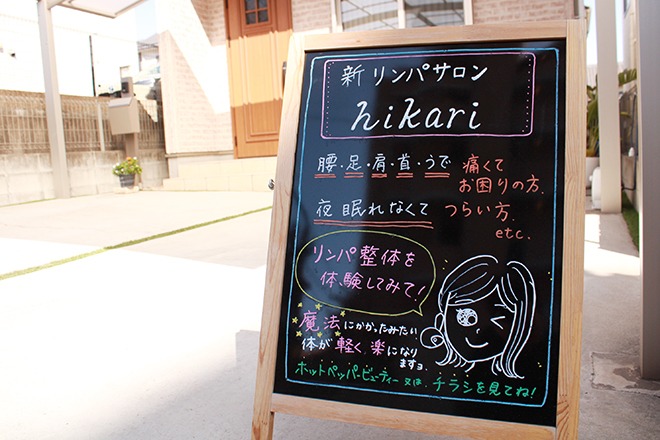 新リンパサロン
hikari
腰・足・肩・首・うで 痛くて
お困りの方.
夜 眠れなくて つらい方.
etc.
リンパ整体を
体験してみて!
魔法にかかったみたい
体が軽く、楽になり
ますョ.
ホットペッパービューティー 又は、チラシを見てね!